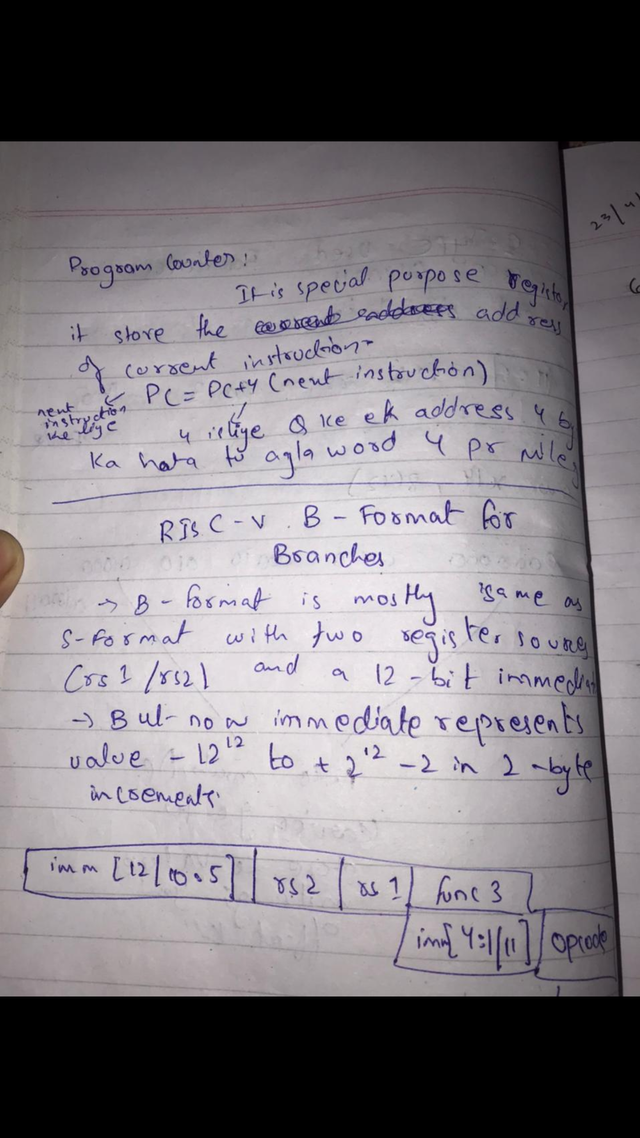 23/4/
Program Counter:
It is special purpose register,
it store the current address address
of current instruction.
PC = PC+4 (next instruction)
next
instruction
ke liye
4 isliye Q ke ek address 4 by
ka hota to agla word 4 pr mile
RISC-V B-Format for
Branches
→ B-format is mostly same as
S-Format with two register source
(rs1/rs2) and a 12-bit immedia
→ But now immediate represents
value -12^12 to +2^12 -2 in 2-byte
increments.
imm [12/10:5] rs2 rs1 func 3
imm[4:1/11] opcode